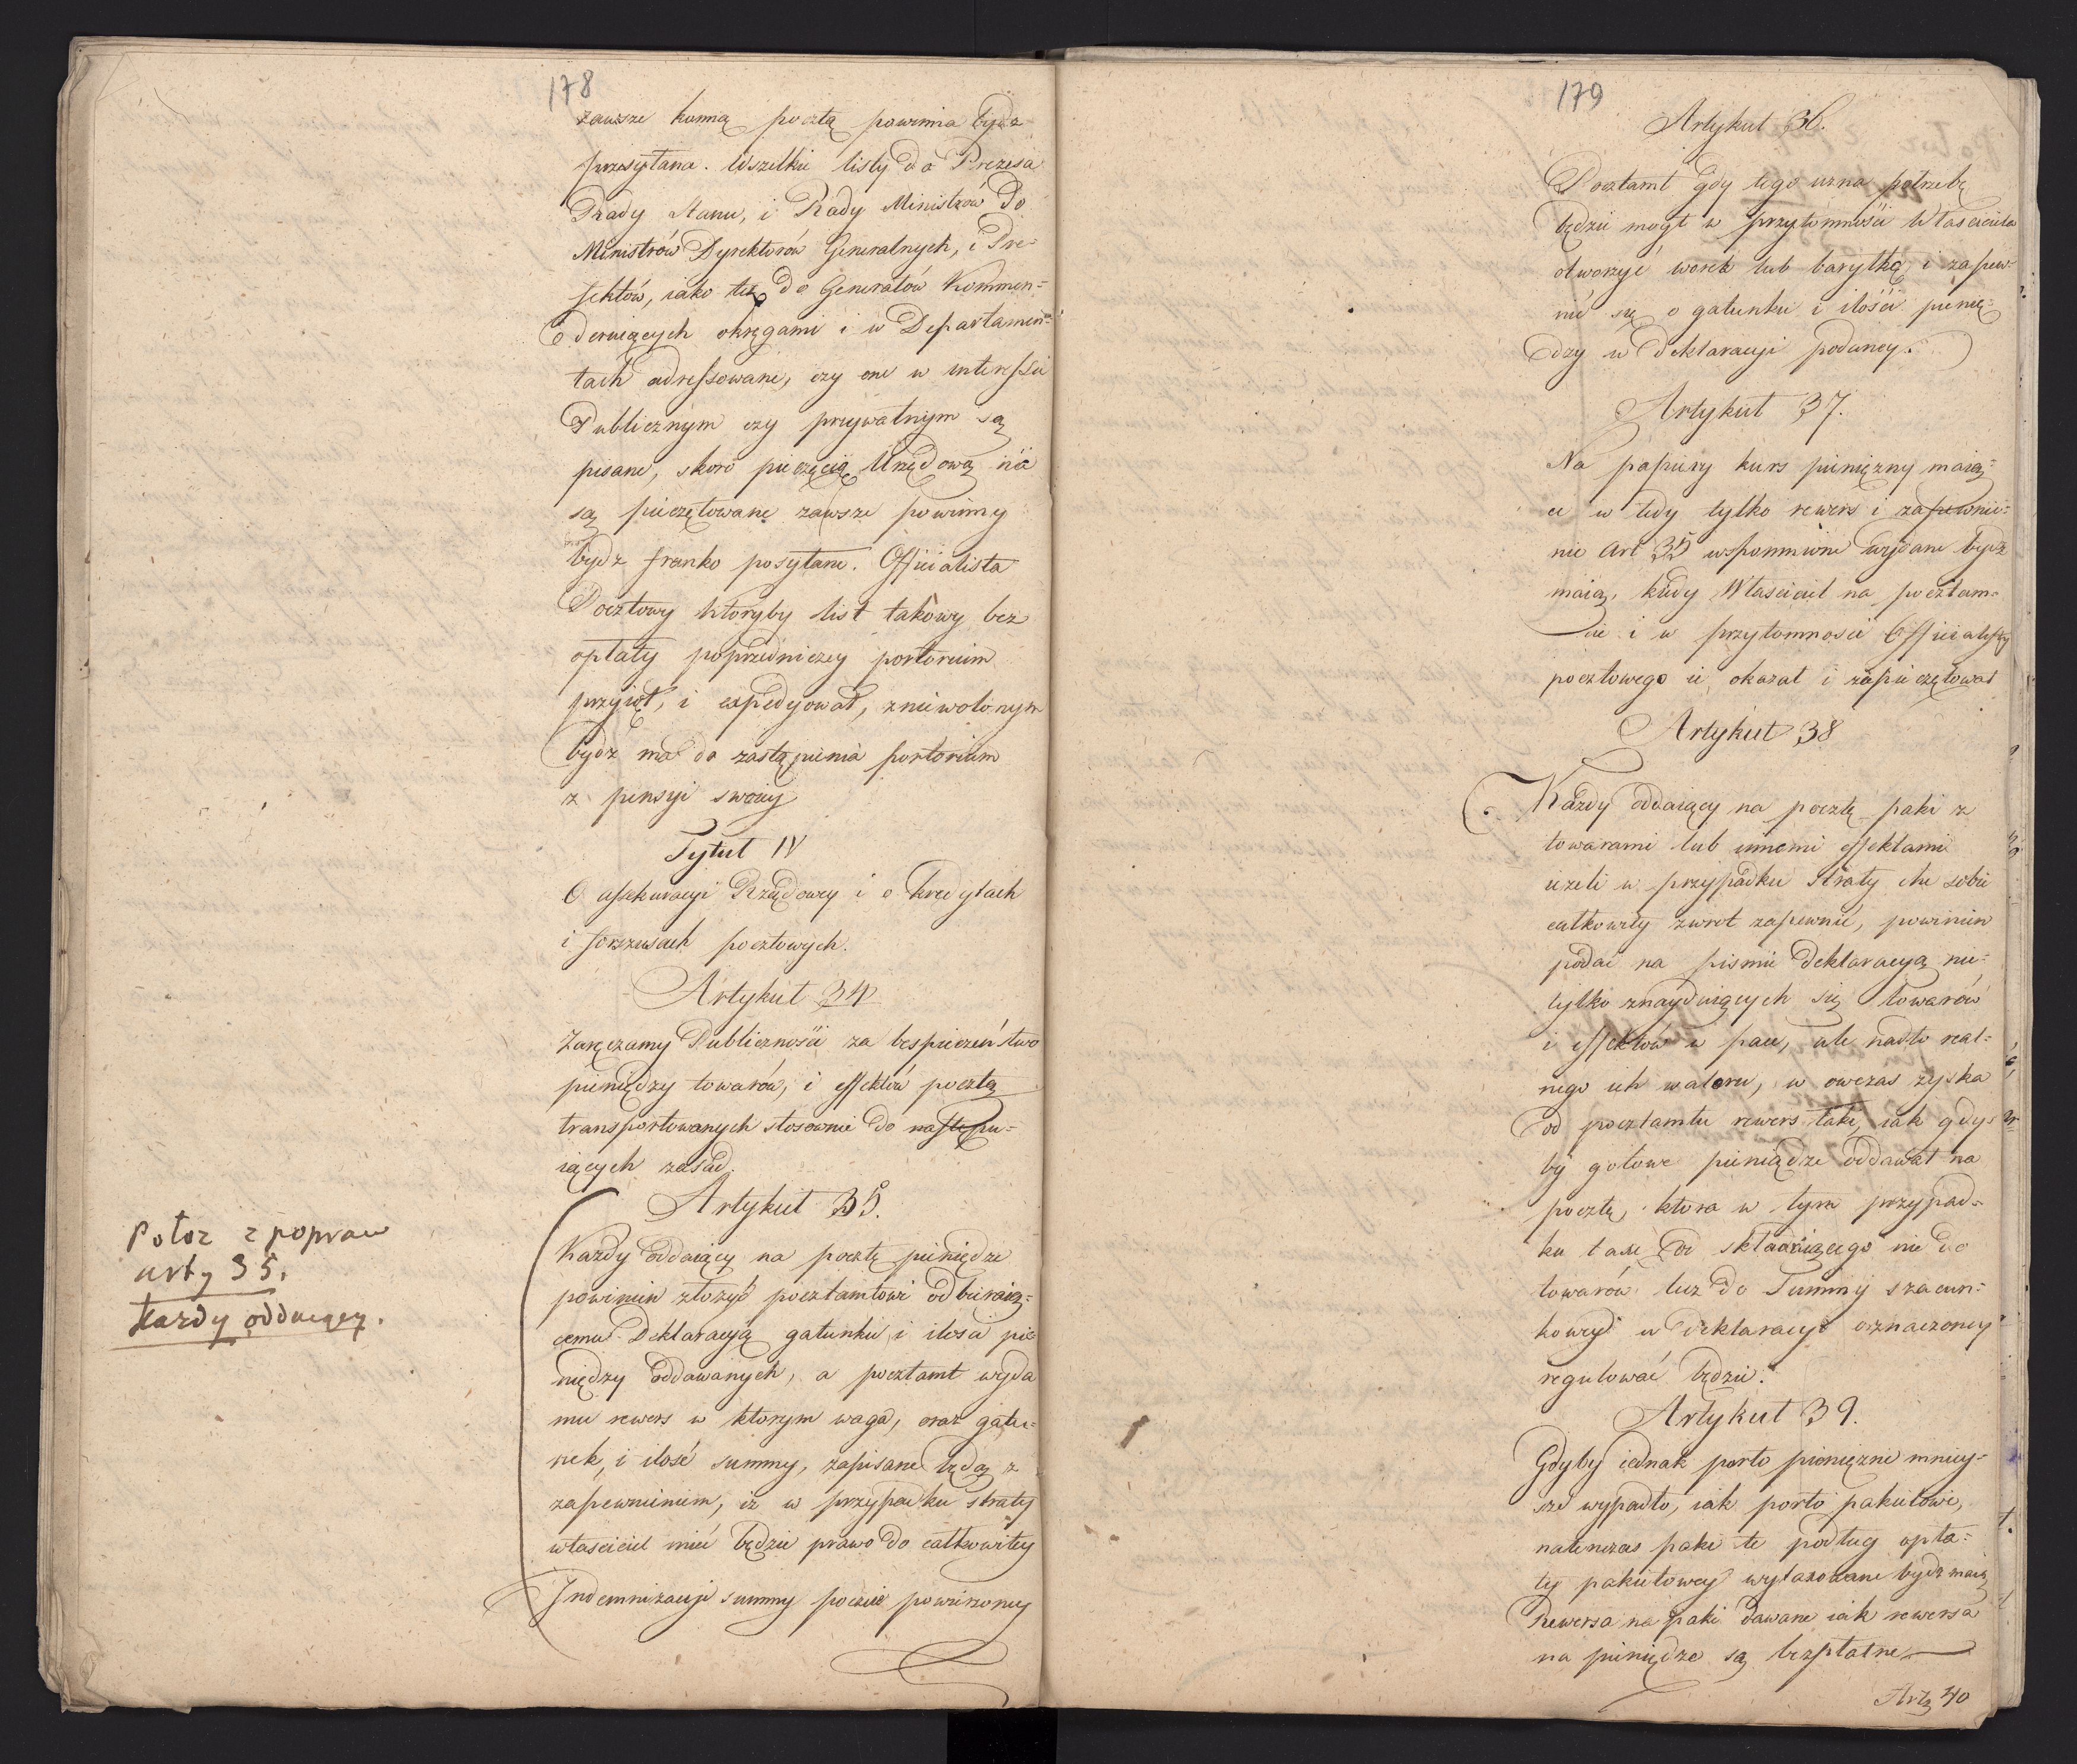 178
zawsze konną pocztą powinna bydz
przesyłana. Wszelkie listy do Prezesa
Rady Stanu, i Rady Ministrów do
Ministrów Dyrektorów Generalnych, i Pre-
fektów, iako też do Generałów Kommen=
deruiących okręgami i w Departamen=
tach adressowane, czy one w interessie
Publicznym czy prywatnym są
pisane, skoro pieczęcią Urzędową nie
są pieczętowane zawsze powinny
bydz franko posyłane. Officialista
Pocztowy ktoryby list takowy bez
opłaty poprzedniczey portorium
przyiął, i expedyował, zniewolonym
bydz ma do zastąpienia portorium
z pensyi swoiey
Tytuł IV
O assekuracyi Rządowey i o kredytach
i forszusach pocztowych.
Artykuł 34
Zaręczamy Publicznośći za bespieczeństwo
pieniędzy towarów, i effektów pocztą
transportowanych stosownie do nastepu=
iących zasad.
Artykuł 35.
Każdy oddaiący na pocztę pieniędze
powinien złożyć pocztamtowi odbieraią=
cemu Deklaracyą gatunku i ilosci pie
niędzy oddawanych, a pocztamt wyda
mu rewers w ktorym waga, oraz gatu=
nek, i ilość summy, zapisane będą z
zapewnieniem, iż w przypadku straty
własciciel mieć będzie prawo do całkowitey
Indemnizacyi summy poczcie powierzoney
Potoz z popraw
arty 35.
Kazdy oddaiący.
179
Artykuł 36.
Pocztamt gdy tego uzna potrzebę
będzie mogł w przytomnośći Własciciela
otworzyć worek lub baryłkę i zapew-
nić się o gatunku i ilośći pienię=
dzy w deklaracyi podaney.
Artykuł 37.
Na papiery kurs pieniężny maią=
ce w tedy tylko rewers i zapewnie=
nie Art 35 wspomnione wydane bydz
maią, kiedy Własciciel na pocztam=
cie i w przytomnosci Officialisty
pocztowego ie okazał i zapieczętował
Artykuł 38
Każdy oddaiący na pocztę paki z
towarami lub innemi effektami
ieżeli w przypadku straty chce sobie
całkowity zwrot zapewnić, powinien
podać na pismie deklaracyą nie=
tylko znayduiących się towarów
i effektów w pace, ale nadto real=
nego ich waloru, w owczas zyska
od pocztamtu rewers taki, iak gdy=
by gotowe pieniądze oddawał na
pocztę, ktora w tym przypad=
ku taxe od składaiącego nie do
towarów lecz do Summy szacun=
kowey w deklaracyi oznaczoney
regulować będzie.
Artykuł 39.
Gdyby iednak porto pieniężne mniey=
sze wypadło, iak porto pakietowe,
natenczas paki te podług opła=
ty pakietowey wytaxowane bydz maią
Rewersa na paki dawane iak rewersa
na pieniędze są bezpłatne
Arty 40